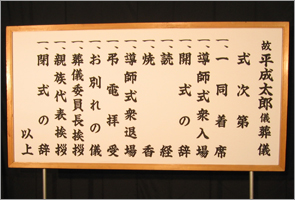 故 平成太郎儀葬儀
式次第
一、一同着席
一、導師式衆入場
一、開式の辞
一、読経
一、焼香
一、導師式衆退場
一、弔電拝受
一、お別れの儀
一、葬儀委員長挨拶
一、親族代表挨拶
一、閉式の辞
以上